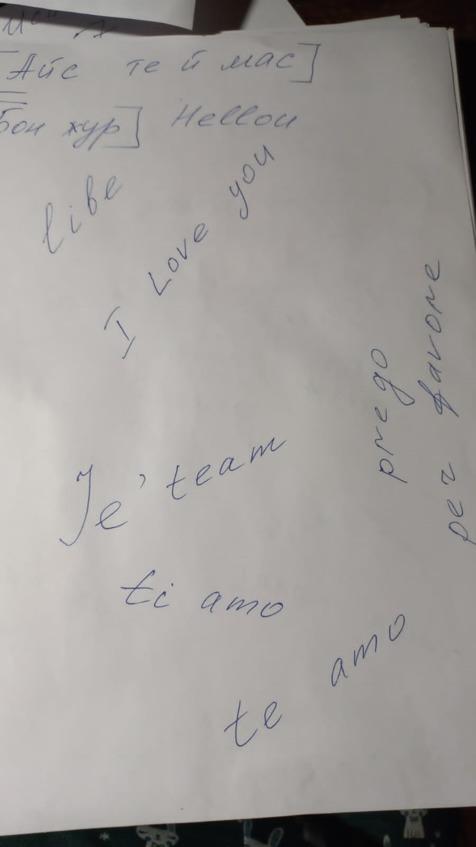 [Айс тей мас]
Бон жур] Hellou
libe
I Love you
prego
per favore
Je' team
ti amo
te amo